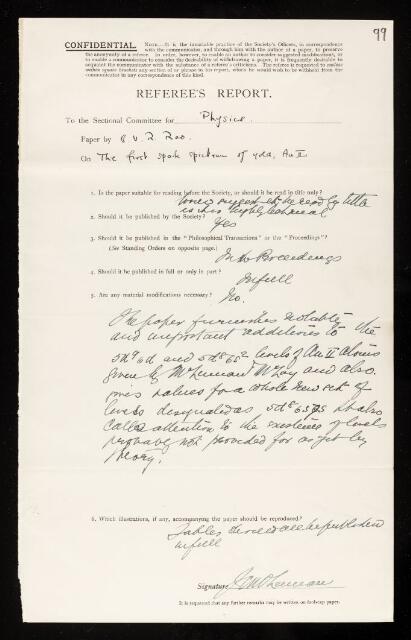 99
CONFIDENTIAL. NOTE.—It is the invariable practice of the Society's Officers, in correspondence
with the communicator, and through him with the author of a paper, to preserve
the anonymity of a referee. In order, however, to enable an author to consider suggested modifications, or
to enable a communicator to consider the desirability of withdrawing a paper, it is frequently desirable to
acquaint the communicator with the substance of a referee's criticisms. The referee is requested to enclose
within square brackets any section of or phrase in his report, which he would wish to be withheld from the
communicator in any correspondence of this kind.
REFEREE'S REPORT.
To the Sectional Committee for Physics.
Paper by K. R. Rao.
On The first spark spectrum of gold, Au II
1. Is the paper suitable for reading before the Society, or should it be read in title only?
would suggest it be read by title
as it is highly technical
2. Should it be published by the Society?
Yes
3. Should it be published in the "Philosophical Transactions" or the "Proceedings"?
(See Standing Orders on opposite page.)
In the Proceedings
4. Should it be published in full or only in part?
In full
5. Are any material modifications necessary?
No.
The paper furnishes notable
and important additions to the
5d⁹ 6d and 5d⁸ 6s² levels of Au II atoms
given by McLennan & McLay and also
gives values for a whole new set of
levels designated as 5d⁸ 6s 7s It also
calls attention to the existence of levels
probably not provided for as yet by
theory.
6. Which illustrations, if any, accompanying the paper should be reproduced?
Tables should all be published
in full
Signature J C McLennan
It is requested that any further remarks may be written on foolscap paper.